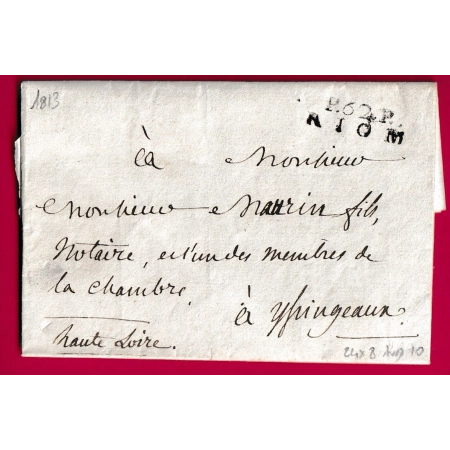 1813
P.62.P.
RIOM
à Monsieur
Monsieur Maurin fils,
Notaire, et l'un des membres de
la chambre,
à Yssingeaux.
haute Loire.